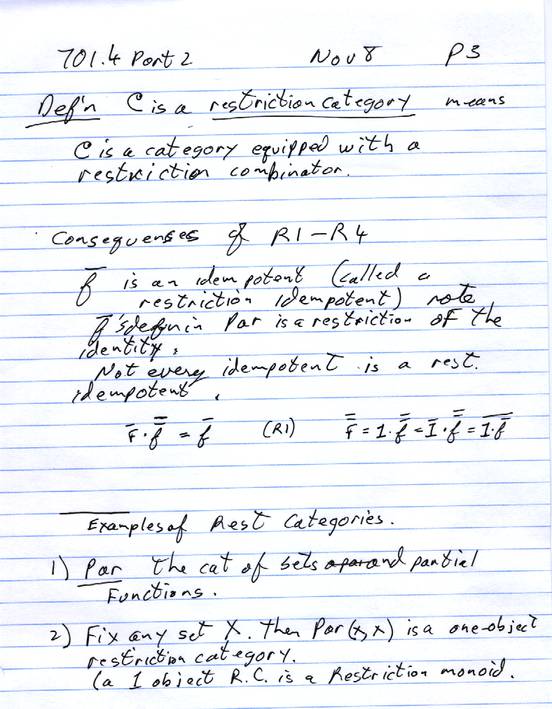 701.4 Part 2 Nov 8 P3
Def'n C is a restriction category means
C is a category equipped with a
restriction combinator.
Consequences of R1-R4
f̅ is an idempotent (called a
restriction idempotent) note
in Par is a restriction of the
identity.
Not every idempotent is a rest.
idempotent.
f̅·f̿ = f̅ (R1) f̿ = 1·f̿ = 1̅·f̿ = \overline{1·f̅}
Examples of Rest Categories.
1) Par The cat of sets and partial
Functions.
2) Fix any set X. Then Par(X,X) is a one-object
restriction category.
(a 1 object R.C. is a Restriction monoid.